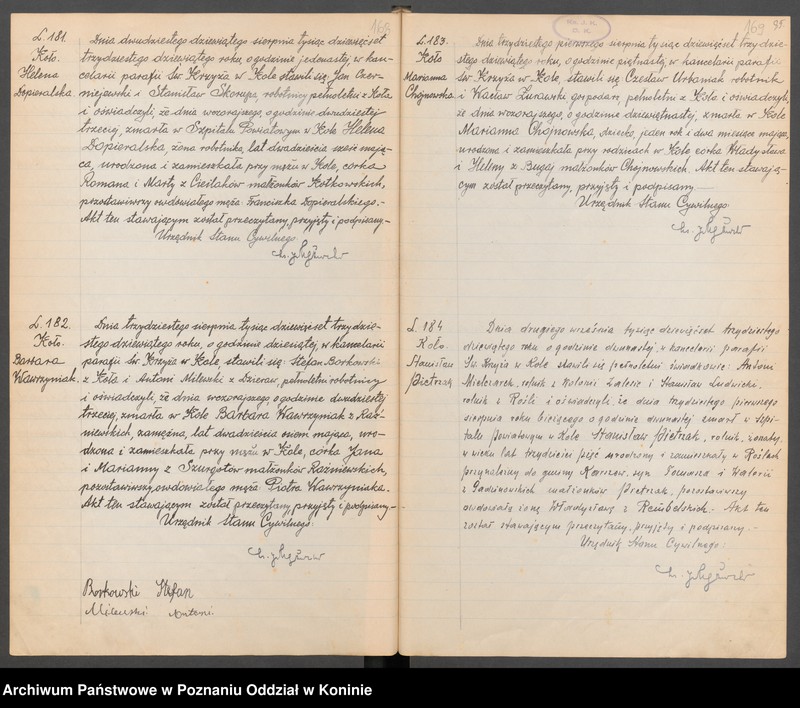 L. 181.
Koło.
Helena
Dopieralska
Dnia dwudziestego dziewiątego sierpnia tysiąc dziewięćset
trzydziestego dziewiątego roku, o godzinie jedenastej w kan-
celarii parafii Św. Krzyża w Kole stawili się, Jan Czer-
niejewski i Stanisław Skorupa, robotnicy pełnoletni z Koła
i oświadczyli, że dnia wczorajszego, o godzinie dwudziestej
trzeciej, zmarła w Szpitalu Powiatowym w Kole Helena
Dopieralska, żona robotnika, lat dwadzieścia sześć mają-
ca, urodzona i zamieszkała przy mężu w Kole, córka
Romana i Marty z małżonków Kotkowskich,
pozostawiwszy owdowiałego męża Franciszka Dopieralskiego.-
Akt ten stawającym został przeczytany, przyjęty i podpisany-
Urzędnik Stanu Cywilnego
L. 182.
Koło.
Barbara
Wawrzyniak.
Dnia trzydziestego sierpnia tysiąc dziewięćset trzydzie-
stego dziewiątego roku, o godzinie dziesiątej, w kancelarii
parafii Św. Krzyża w Kole, stawili się: Stefan Borkowski
z Koła i Antoni Milewski z Dzieraw, pełnoletni robotnicy
i oświadczyli, że dnia wczorajszego, o godzinie dwudziestej
trzeciej, zmarła w Kole Barbara Wawrzyniak z Raź-
niewskich, zamężna, lat dwadzieścia osiem mająca, uro-
dzona i zamieszkała przy mężu w Kole, córka Jana
i Marianny z Szurgotów małżonków Raźniewskich,
pozostawiwszy owdowiałego męża Piotra Wawrzyniaka.
Akt ten stawającym został przeczytany, przyjęty i podpisany.-
Urzędnik Stanu Cywilnego:
Borkowski Stefan
Milewski Antoni
169 95.
L. 183.
Koło
Marianna
Chojnowska.
Dnia trzydziestego pierwszego sierpnia tysiąc dziewięćset trzydzie-
stego dziewiątego roku, o godzinie piętnastej, w kancelarii parafii
Św. Krzyża w Kole, stawili się Czesław Urbaniak robotnik
i Wacław Żurawski gospodarz, pełnoletni z Koła i oświadczyli,
że dnia wczorajszego, o godzinie dziewiętnastej, zmarła w Kole
Marianna Chojnowska, dziecko, jeden rok i dwa miesiące mające,
urodzona i zamieszkała przy rodzicach w Kole, córka Władysława
i Heleny z Bugaj małżonków Chojnowskich. Akt ten stawają-
cym został przeczytany, przyjęty i podpisany.
Urzędnik Stanu Cywilnego
L. 184
Koło.
Stanisław
Pietrzak
Dnia drugiego września tysiąc dziewięćset trzydziestego
dziewiątego roku o godzinie dwunastej, w kancelarii parafii
Św. Krzyża w Kole stawili się pełnoletni świadkowie: Antoni
rolnik z Kolonii Zalesie i Stanisław Ludwicki
rolnik z i oświadczyli, że dnia trzydziestego pierwszego
sierpnia roku bieżącego o godzinie dwunastej zmarł w Szpi-
talu Powiatowym w Kole Stanisław Pietrzak, rolnik, żonaty,
w wieku lat trzydzieści pięć urodzony i zamieszkały w
przynależny do gminy syn Tomasza i Walerii
z małżonków Pietrzak, pozostawiwszy
owdowiałą żonę Władysławę z Akt ten
został stawającym przeczytany, przyjęty i podpisany.-
Urzędnik Stanu Cywilnego:
Archiwum Państwowe w Poznaniu Oddział w Koninie